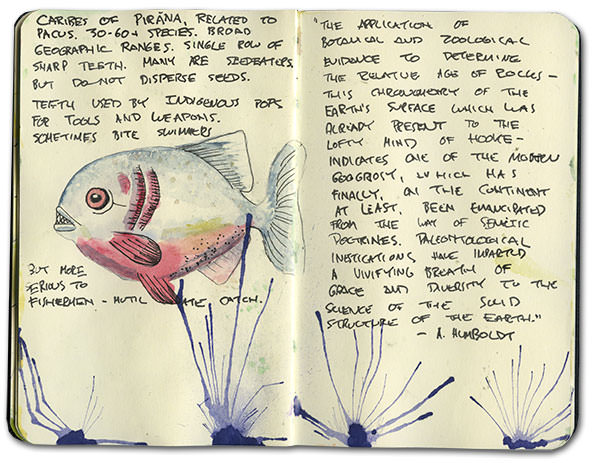 CARIBES OF PIRÃNA, RELATED TO
PACUS. 30-60+ SPECIES. BROAD
GEOGRAPHIC RANGES. SINGLE ROW OF
SHARP TEETH. MANY ARE SEEDEATERS,
BUT DO NOT DISPERSE SEEDS.
TEETH USED BY INDIGENOUS POPS
FOR TOOLS AND WEAPONS.
SOMETIMES BITE SWIMMERS
BUT MORE
SERIOUS TO
FISHERMEN - MUTILATE CATCH.
"THE APPLICATION OF
BOTANICAL AND ZOOLOGICAL
EVIDENCE TO DETERMINE
THE RELATIVE AGE OF ROCKS -
THIS CHRONOMETRY OF THE
EARTH'S SURFACE WHICH WAS
ALREADY PRESENT TO THE
LOFTY MIND OF HOOKE -
INDICATES ONE OF THE MODERN
WHICH HAS
FINALLY, ON THE CONTINENT
AT LEAST, BEEN EMANCIPATED
FROM THE WAY OF SEMETIC
DOCTRINES. PALEONTOLOGICAL
HAVE IMPARTED
A VIVIFYING BREATH OF
GRACE AND DIVERSITY TO THE
SCIENCE OF THE SOLID
STRUCTURE OF THE EARTH."
- A. HUMBOLDT